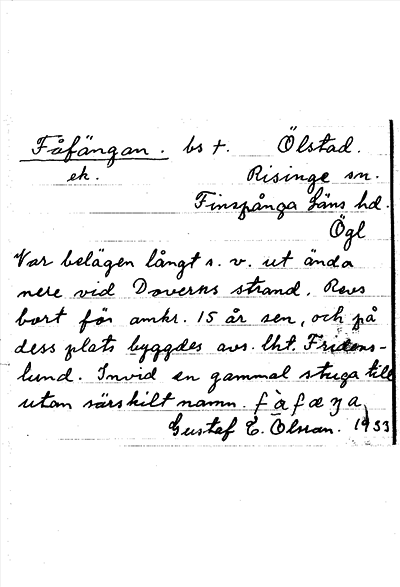 Fåfängan. bs †. Ölstad.
ek. Risinge sn.
Finspånga läns hd.
Ögl
Var belägen långt s. v. ut ända
nere vid Doverns strand. Revs
bort för omkr. 15 år sen, och på
dess plats byggdes avs. lht. Fridens-
lund. Invid en gammal stuga till
utan särskilt namn. fàfæŋa
Gustaf E. Olsson. 1933